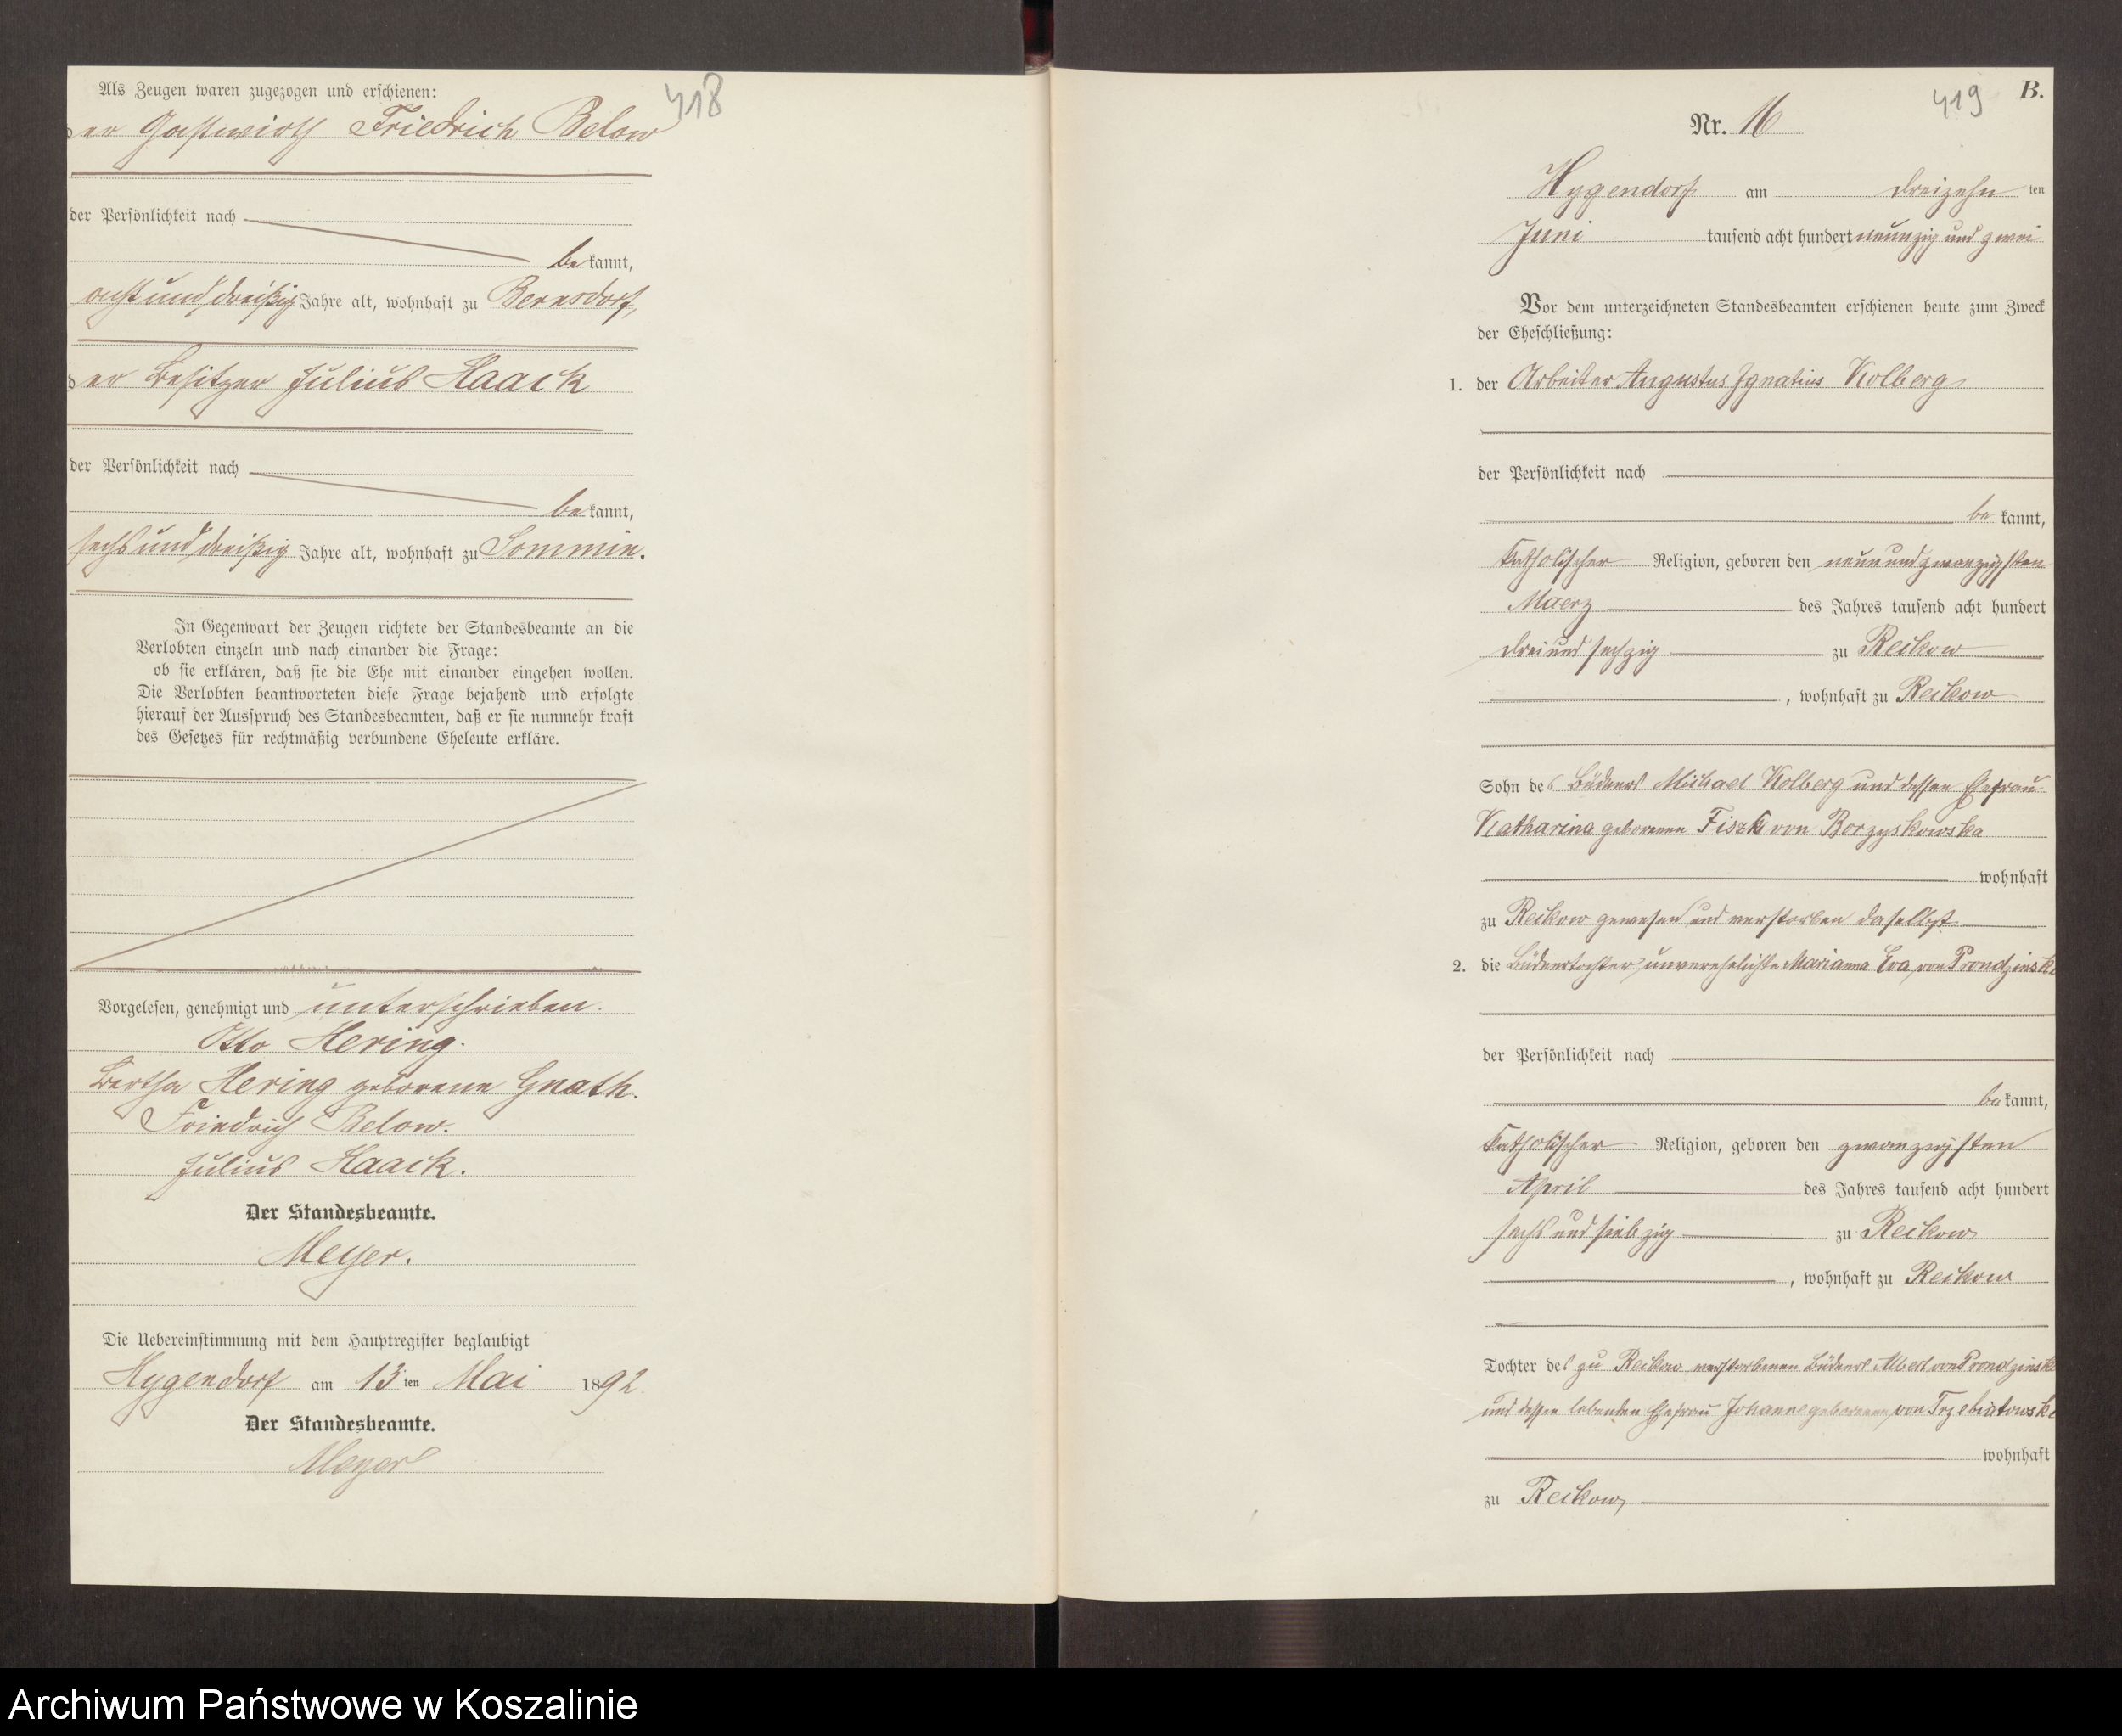 Als Zeugen waren zugezogen und erschienen:
418
der Gastwirth Friedrich Below
der Persönlichkeit nach
bekannt,
acht und dreißig Jahre alt, wohnhaft zu Bernsdorf,
der Besitzer Julius Haack
der Persönlichkeit nach
bekannt,
sechs und dreißig Jahre alt, wohnhaft zu Sommin.
In Gegenwart der Zeugen richtete der Standesbeamte an die
Verlobten einzeln und nach einander die Frage:
ob sie erklären, daß sie die Ehe mit einander eingehen wollen.
Die Verlobten beantworteten diese Frage bejahend und erfolgte
hierauf der Ausspruch des Standesbeamten, daß er sie nunmehr kraft
des Gesetzes für rechtmäßig verbundene Eheleute erkläre.
Vorgelesen, genehmigt und unterschrieben.
Otto Hering.
Bertha Hering geborene Gnath.
Friedrich Below.
Julius Haack.
Der Standesbeamte.
Meyer.
Die Uebereinstimmung mit dem Hauptregister beglaubigt
Hygendorf am 13ten Mai 1892
Der Standesbeamte.
Meyer
B.
419
Nr. 16
Hygendorf am dreizehn ten
Juni tausend acht hundert neunzig und zwei
Vor dem unterzeichneten Standesbeamten erschienen heute zum Zweck
der Eheschließung:
1. der Arbeiter Augustus Ignatius Kolberg
der Persönlichkeit nach
bekannt,
katholischer Religion, geboren den neun und zwanzigsten
Maerz des Jahres tausend acht hundert
drei und sechzig zu Reckow
, wohnhaft zu Reckow
Sohn des Büdners Michael Kolberg und dessen Ehefrau
Katharina geborenen Fiszk von Borzyskowska
wohnhaft
zu Reckow gewesen und verstorben daselbst
2. die Büdnertochter unverehelichte Marianna Eva von Prondzinski
der Persönlichkeit nach
bekannt,
katholischer Religion, geboren den zwanzigsten
April des Jahres tausend acht hundert
sechs und siebzig zu Reckow
, wohnhaft zu Reckow
Tochter des zu Reckow verstorbenen Büdners Albert von Prondzinski
und dessen lebenden Ehefrau Johanne geborenen von Trzebiatowski
wohnhaft
zu Reckow,
Archiwum Państwowe w Koszalinie